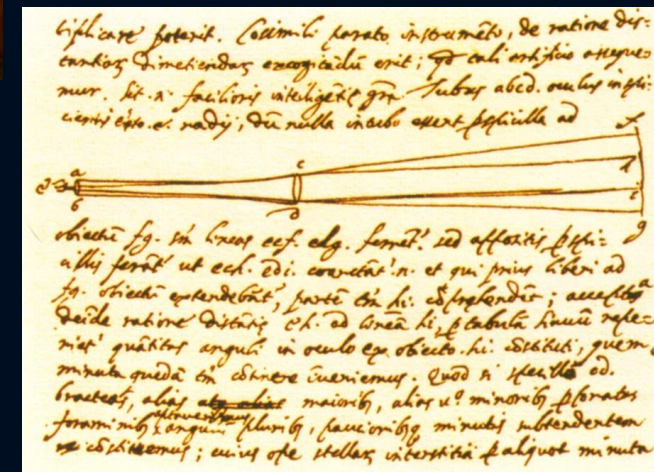 tiplicare poterit. Cosimili parato instrumẽto, de ratione dis-
tantiarum dimetiendarum excogitandũ erit; qd tali artificio asseque-
mur. Sit n. facilioris intelligẽtiae grã Tubus abcd. oculus inspi-
cientis esto e. radij, dũ nulla in tubo essent pspicilla ad
a
b
c
d
e
f
h
i
g
obiectũ fg. lineas ecf. edg. ferrẽt. sed appositis pspi-
cillis ferãt ut ech. edi. coarctãt n. et qui prius liberi ad
fg. obiectũ extendebãt, partẽ tm hi. cõprehendẽt; accepta
deide ratione distãtiae eh. ad lineã hi, p tabulã sinuum repe-
riet quãtitas anguli in oculo ex obiecto hi. cõstituti, quem
minuta quedã tm cõtinere inveniemus. Quod si specillo cd.
bracteas, alias maioribus, alias v.o minoribus pforatas
foraminibus pluribus, paucioribusque minutis subtendentem
cõstituemus; cuius ope stellarum interstitia p aliquot minuta